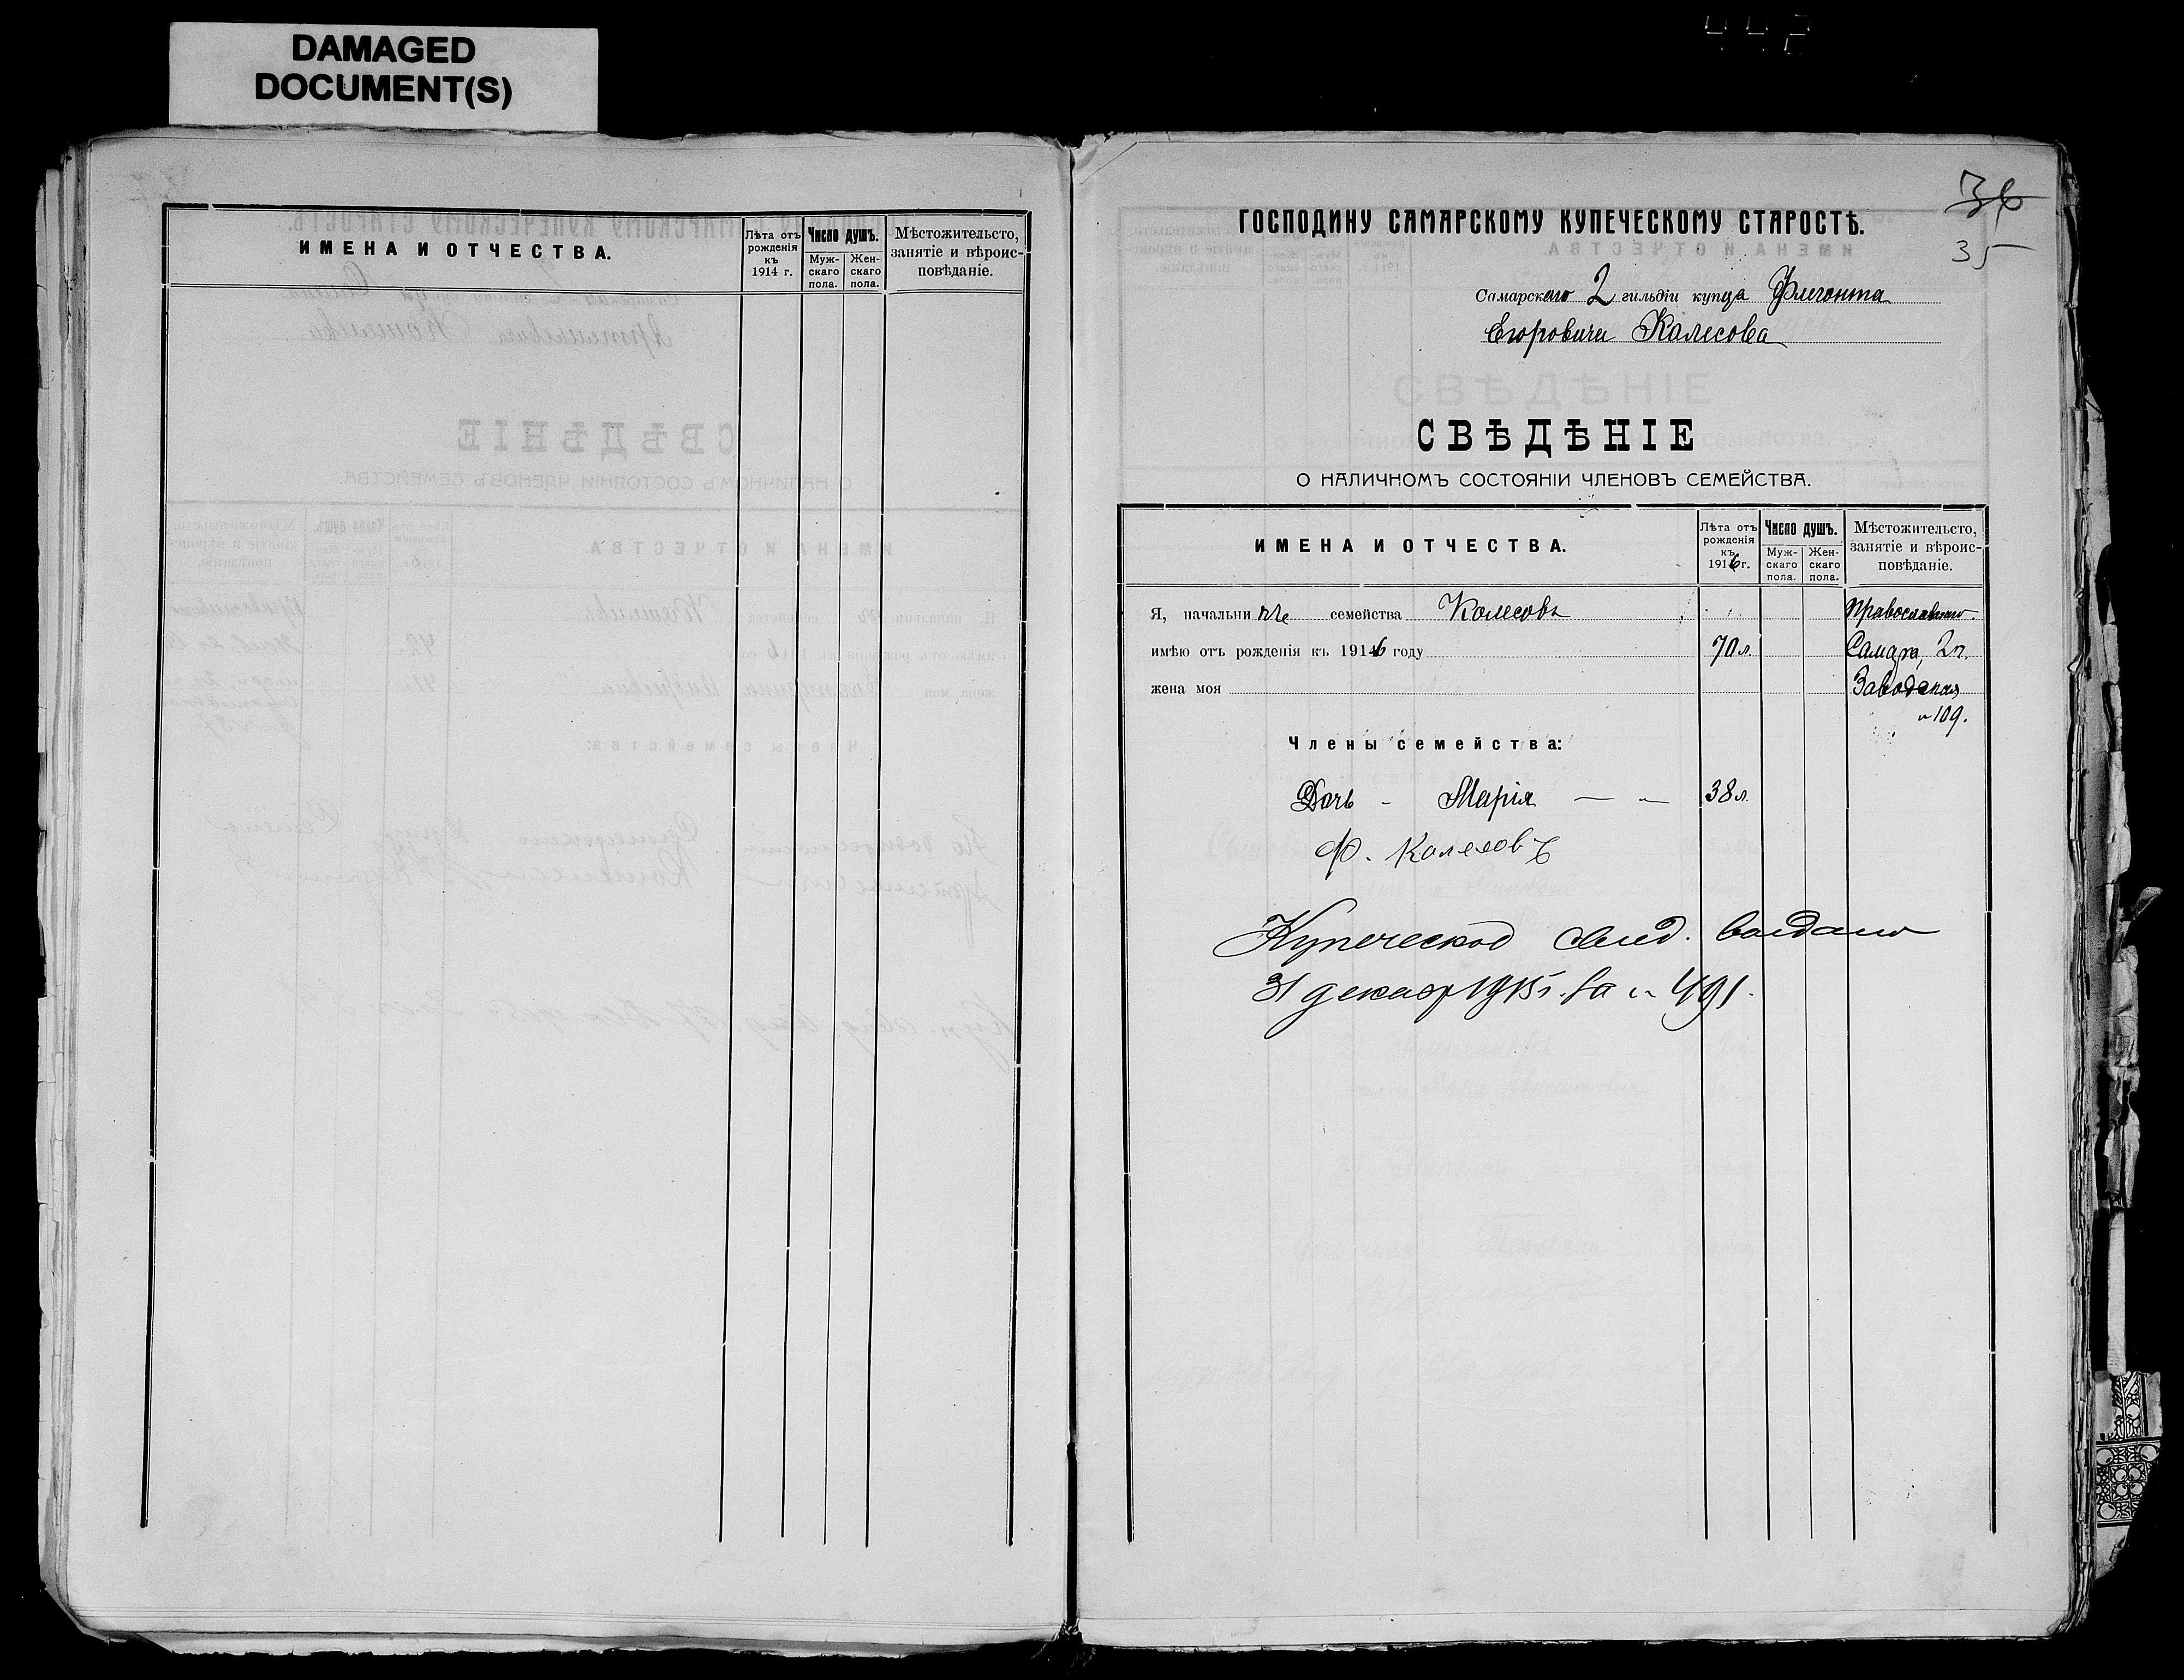 DAMAGED
DOCUMENT(S)
ИМЕНА И ОТЧЕСТВА.
Лѣта отъ рожденія къ 1914 г.
Число душъ.
Муж-скаго пола.
Жен-скаго пола.
Мѣстожительсто, занятіе и вѣроис-повѣданіе.
36
35
ГОСПОДИНУ САМАРСКОМУ КУПЕЧЕСКОМУ СТАРОСТѢ.
Самарскаго 2 гильдіи купца Флегонта
Егоровича Колесова
СВѢДѢНІЕ
О НАЛИЧНОМЪ СОСТОЯНІИ ЧЛЕНОВЪ СЕМЕЙСТВА.
ИМЕНА И ОТЧЕСТВА.
Лѣта отъ рожденія къ 1916 г.
Число душъ.
Муж-скаго пола.
Жен-скаго пола.
Мѣстожительсто, занятіе и вѣроис-повѣданіе.
Я, начальни семейства Колесовъ
имѣю отъ рожденія къ 1916 году 70 л. Самара,
жена моя Заводская
109.
Члены семейства:
Дочь - Марія — — 38 л.
Ф. Колесовъ
Купеческое свид. выдано
31 декабр 1915 г. за № 491.